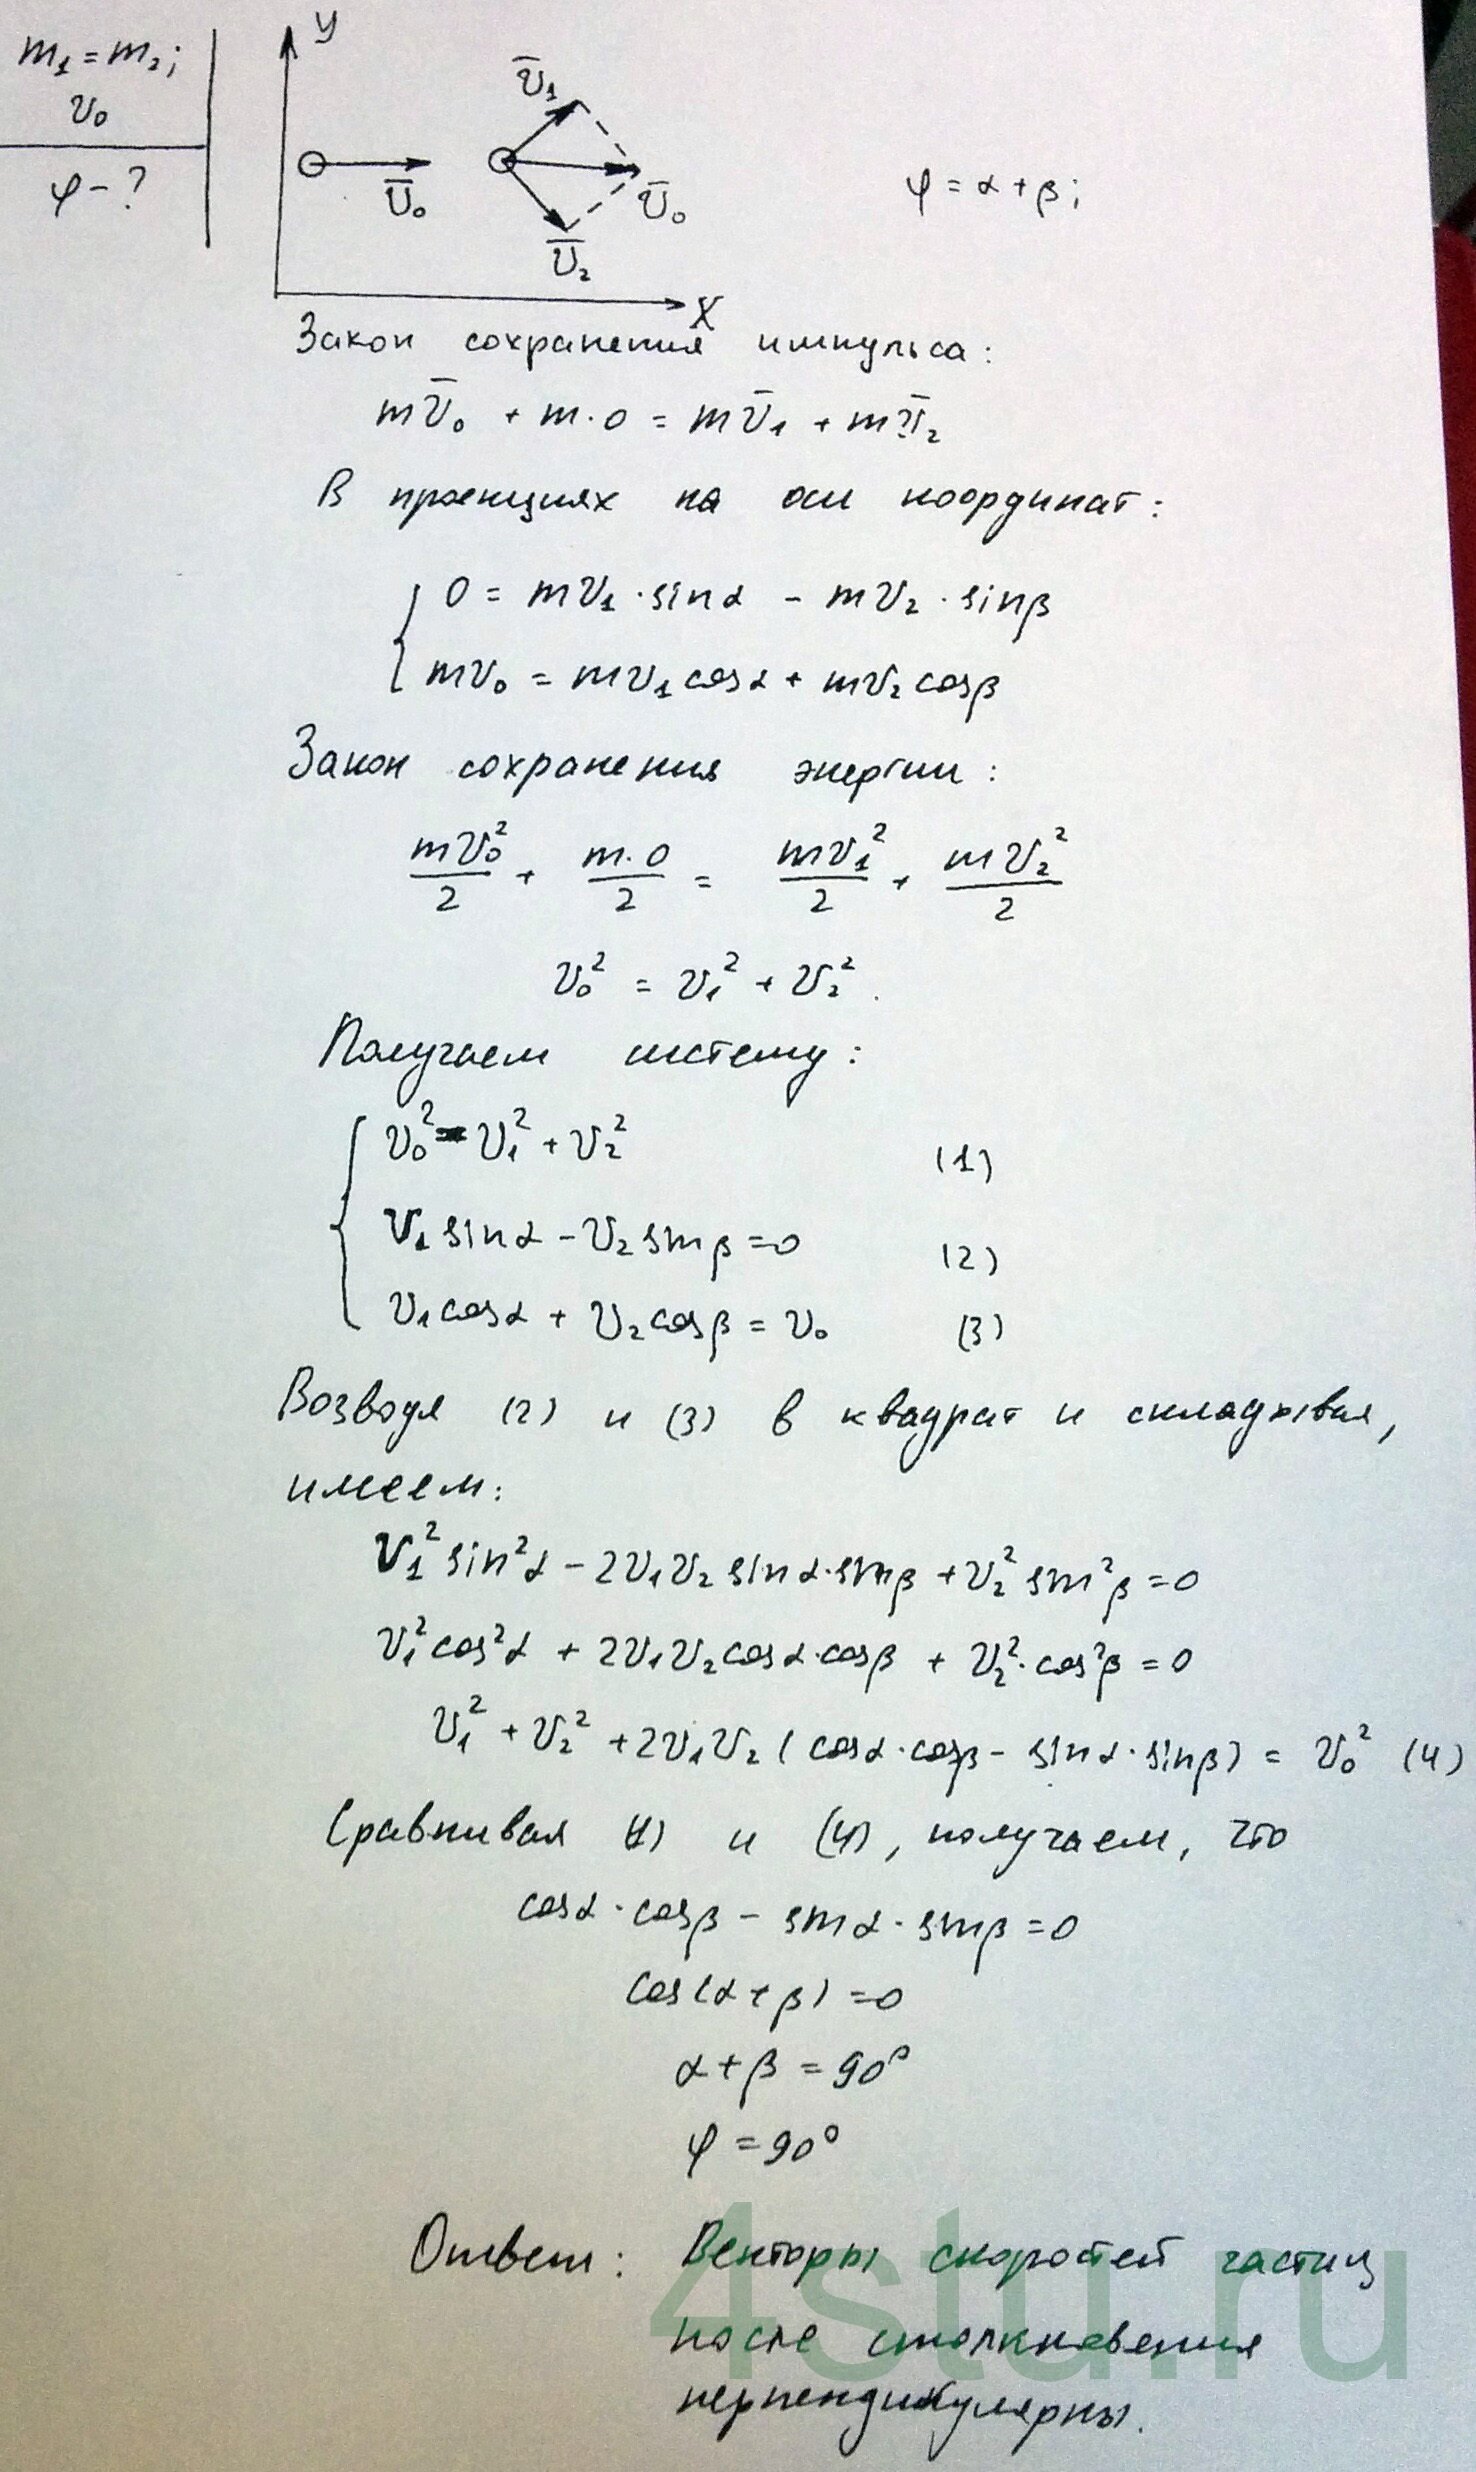 m₁ = m₂;
v₀
φ - ?
y
v̅₁
v̅₀
v̅₀
v̅₂
x
φ = α + β;
Закон сохранения импульса:
mv̅₀ + m·0 = mv̅₁ + mv̅₂
В проекциях на оси координат:
0 = mv₁·sinα - mv₂·sinβ
mv₀ = mv₁cosα + mv₂cosβ
Закон сохранения энергии:
mv₀²/2 + m·0/2 = mv₁²/2 + mv₂²/2
v₀² = v₁² + v₂².
Получаем систему:
v₀² = v₁² + v₂² (1)
v₁sinα - v₂sinβ = 0 (2)
v₁cosα + v₂cosβ = v₀ (3)
Возводя (2) и (3) в квадрат и складывая,
имеем:
v₁²sin²α - 2v₁v₂sinα·sinβ + v₂²sin²β = 0
v₁²cos²α + 2v₁v₂cosα·cosβ + v₂²·cos²β = 0
v₁² + v₂² + 2v₁v₂(cosα·cosβ - sinα·sinβ) = v₀² (4)
Сравнивая (1) и (4), получаем, что
cosα·cosβ - sinα·sinβ = 0
cos(α + β) = 0
α + β = 90°
φ = 90°
Ответ: Векторы скоростей частиц
после столкновения
перпендикулярны.
4stu.ru